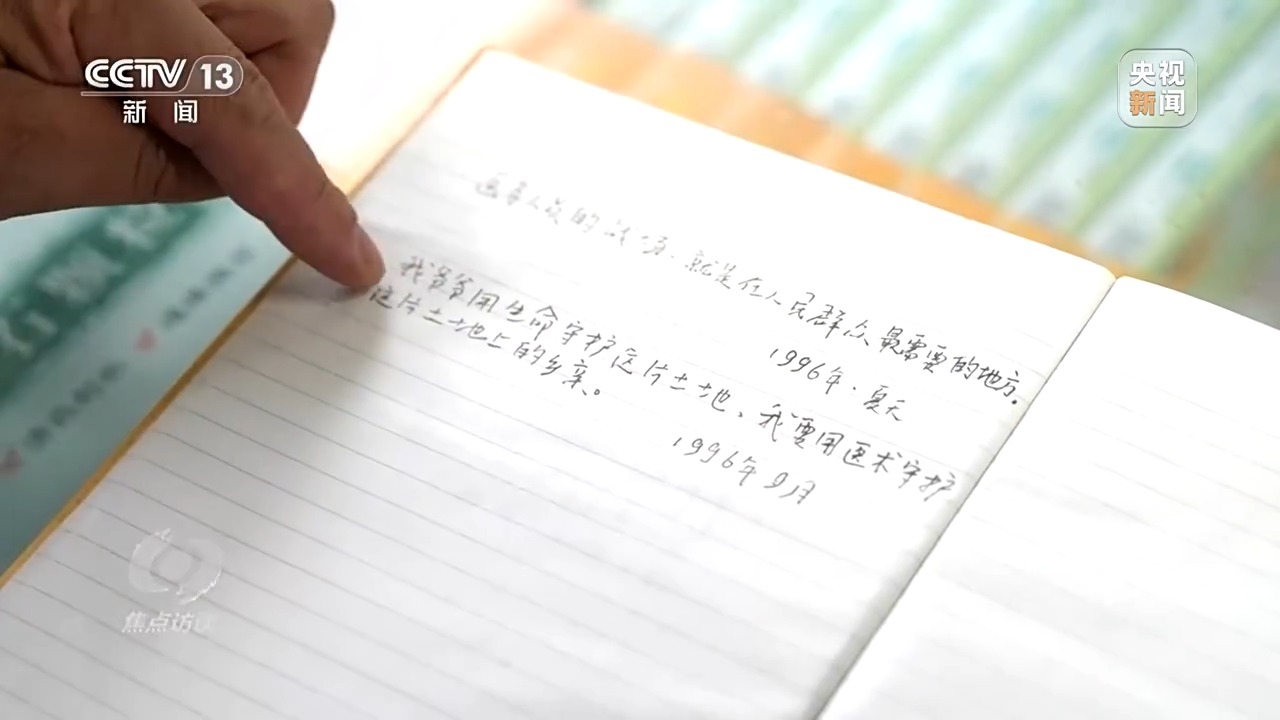 CCTV 13
新闻
央视
新闻
医务人员的战场,就是在人民群众最需要的地方。
1996年·夏天
我爷爷用生命守护这片土地、我要用医术守护
这片土地上的乡亲。
1996年9月
焦点访谈